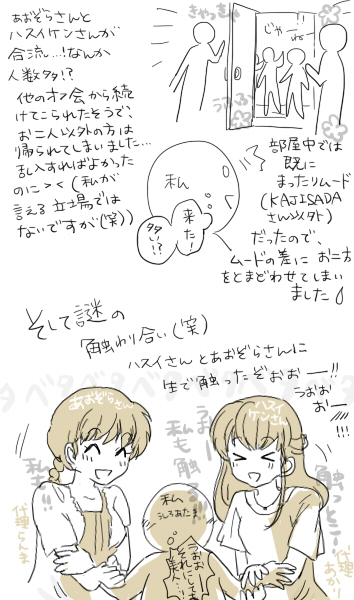 あおぞらさんと
ハスイケンさんが
合流…!なんか
人数多!?
他のオフ会から続
けてこられたそうで、
お二人以外の方は
帰られてしまいました…
乱入すればよかった
のに><(私が
言える立場では
ないですが(笑))
きゃっきゃ
じゃ
ねー
うふふ
部屋中では
既に
まったりムード
(KAJISADA
さん以外)
だったので、
ムードの差にお二方
をとまどわせてしまい
ました
私
来た!
多い!?
そして謎の
触わり合い(笑)
ハスイさんとあおぞらさんに
生で触ったぞおお
ーー!!
うおお
おー
ベタベタベタベタ
あおぞらさん
ハスイ
ケンさん
うおー
私も触る
私も!!
触っとこー
私
うしろあたま
うおお
それにしても
美人…!!
代理らんま
代理
あかり